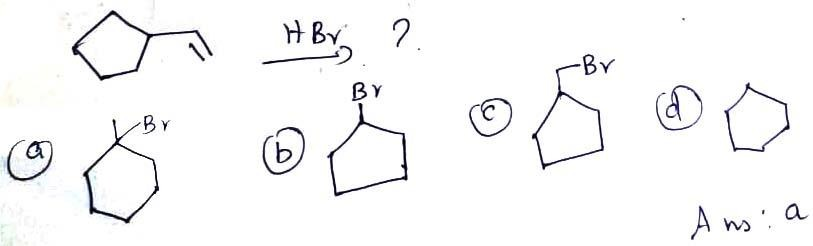 HBr ?
a Br
b Br
c Br
d
Ans: a